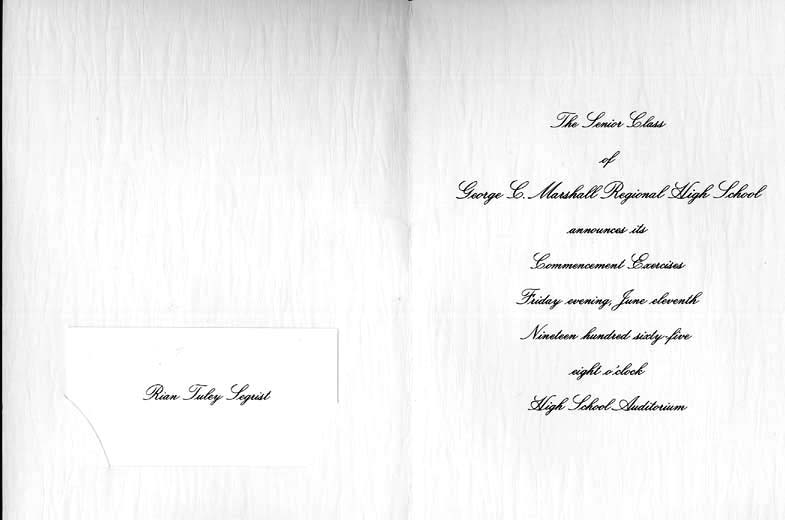 Rian Tuley Segrist
The Senior Class
of
George C. Marshall Regional High School
announces its
Commencement Exercises
Friday evening, June eleventh
Nineteen hundred sixty-five
eight o'clock
High School Auditorium